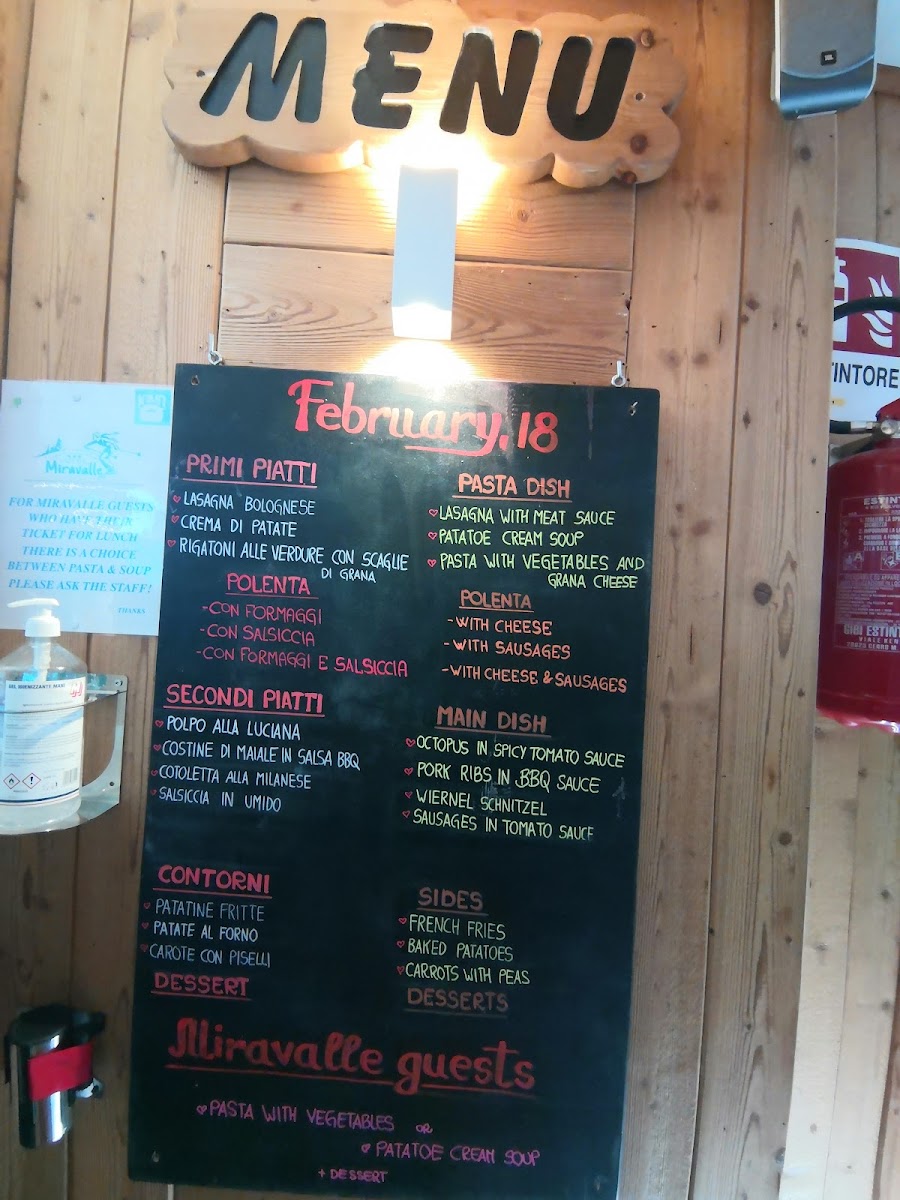 MENU
JBL
February, 18
PRIMI PIATTI
LASAGNA BOLOGNESE
CREMA DI PATATE
RIGATONI ALLE VERDURE CON SCAGLIE
DI GRANA
POLENTA
-CON FORMAGGI
-CON SALSICCIA
-CON FORMAGGI E SALSICCIA
SECONDI PIATTI
POLPO ALLA LUCIANA
COSTINE DI MAIALE IN SALSA BBQ
COTOLETTA ALLA MILANESE
SALSICCIA IN UMIDO
CONTORNI
PATATINE FRITTE
PATATE AL FORNO
CAROTE CON PISELLI
DESSERT
PASTA DISH
LASAGNA WITH MEAT SAUCE
PATATOE CREAM SOUP
PASTA WITH VEGETABLES AND
GRANA CHEESE
POLENTA
-WITH CHEESE
-WITH SAUSAGES
-WITH CHEESE & SAUSAGES
MAIN DISH
OCTOPUS IN SPICY TOMATO SAUCE
PORK RIBS IN BBQ SAUCE
WIERNEL SCHNITZEL
SAUSAGES IN TOMATO SAUCE
SIDES
FRENCH FRIES
BAKED PATATOES
CARROTS WITH PEAS
DESSERTS
Miravalle guests
PASTA WITH VEGETABLES OR
PATATOE CREAM SOUP
+ DESSERT
Miravalle
FOR MIRAVALLE GUESTS
WHO HAVE THEIR
TICKET FOR LUNCH
THERE IS A CHOICE
BETWEEN PASTA & SOUP
PLEASE ASK THE STAFF!
THANKS
GEL IGIENIZZANTE MANI
TINTORE
ESTINT
GIBI ESTINT